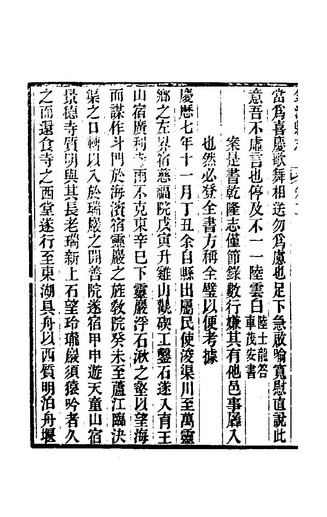 當爲喜慶歌舞相送勿爲慮也足下急啟喻寬慰直說此
意吾不虛言也停及不一一陸雲白陸士龍答車茂安書
案是書乾隆志僅節錄數行嫌其有他邑事羼入
也然必登全書方稱全璧以便考據
慶曆七年十一月丁丑余自縣出屬民使浚渠川至萬靈
鄉之左界宿慈福院戊寅升雞山觀碶工鑿石遂入育王
山宿廣利寺雨不克東辛巳下靈巖浮石湫之壑以望海
而謀作斗門於海濱宿靈巖之旌教院癸未至蘆江臨決
渠之口轉以入於瑞巖之開善院遂宿甲申遊天童山宿
景德寺質明與其長老瑞新上石望玲瓏巖須猿吟者久
之而還食寺之西堂遂行至東湖具舟以西質明泊舟堰